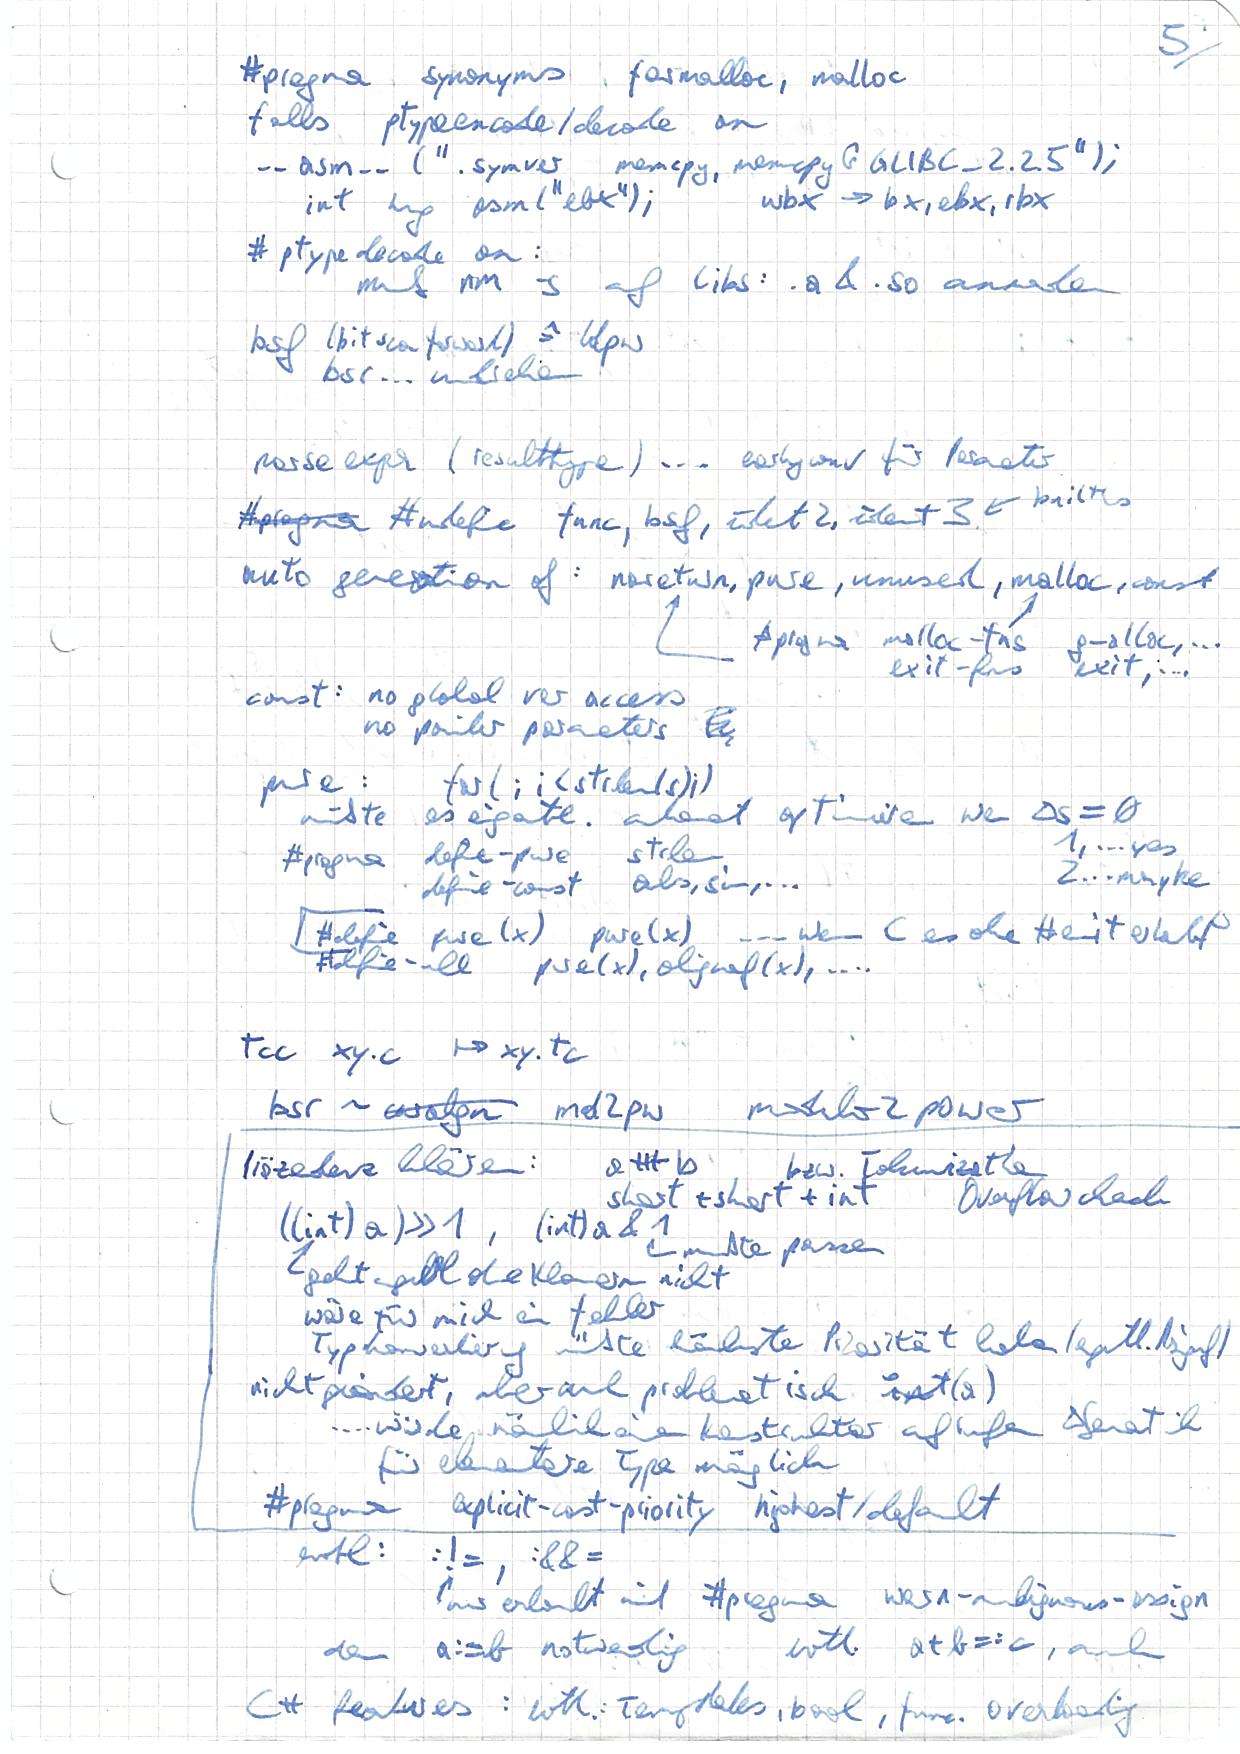 5./
#pragma synonyms farmalloc, malloc
falls ptypeencode/decode on
--asm-- (".symver memcpy, memcpy@GLIBC_2.2.5");
int hng asm("ebx"); wbx → bx, ebx, rbx
# ptypedecode on:
muß nm -s auf libs: .a & .so anwenden
bsf (bit scan forward) ≙ ldpw
bsr...
parse expr (resulttype) ... für Parameter
#pragma #undefine func, bsf, ident2, ident3 ← builtins
auto generation of: noreturn, pure, unused, malloc, const
#pragma malloc-fns g-alloc,...
exit-fns exit,...
const: no global var access
no pointer parameters
pure: for(; i<strlen(s);)
müßte es eigentl. optimieren wenn Δs=0
1,...yes
#pragma define-pure strlen
2...maybe
define-const abs, sin,...
#define pure(x) pure(x) ... wenn C es ohne #emit erlaubt
#define-null pure(x), alignof(x),....
tcc xy.c ↦ xy.tc
bsr ~ mod2pw modulo-2 power
Präzedenz klären: a ## b bzw. Tokenization
short + short + int Overflow check
((int)a)>>1, (int)a&1
müßte passen
geht ohne Klammern nicht
wäre für mich ein Fehler
Typkonvertierung müßte höchste Priorität haben
nicht geändert, aber auch problematisch int(a)
.... würde nämlich einen Konstruktor aufrufen
für elementare Type möglich
#pragma explicit-cast-priority highest/default
evtl: :!=, :&&=
nur erlaubt mit #pragma warn-ambiguous-assign
dann a:=b notwendig evtl. a+b=:c, auch
C# features: evtl.: Templates, bool, func. overloading